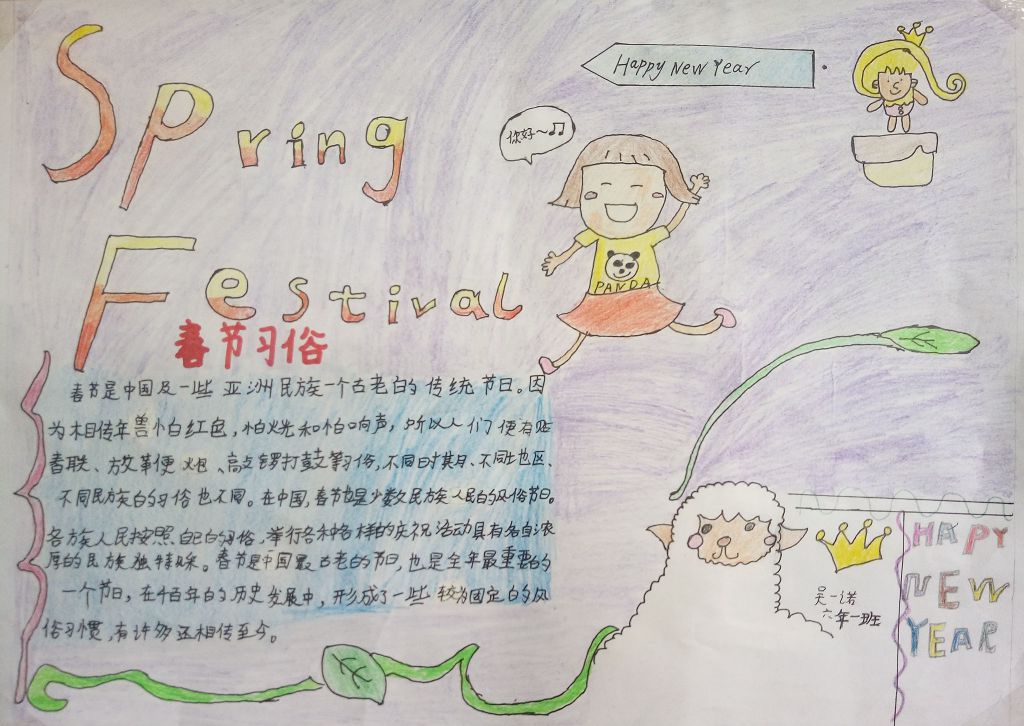 Spring
Festival
Happy New Year
你好~
PANDA
春节习俗
春节是中国及一些亚洲民族一个古老的传统节日。因
为相传年兽怕红色,怕火光和怕响声,所以人们便有贴
春联、放革便炮、高点锣打鼓等习俗,不同时期、不同地区、
不同民族的习俗也不同。在中国,春节也是少数民族人民的风俗节日。
各族人民按照自己的习俗,举行各种各样的庆祝活动具有各自浓
厚的民族独特味。春节是中国最古老的节日,也是全年最重要的
一个节日,在千百年的历史发展中,形成了一些较为固定的风
俗习惯,有许多还相传至今。
吴一诺
六年一班
HAPPY
NEW
YEAR